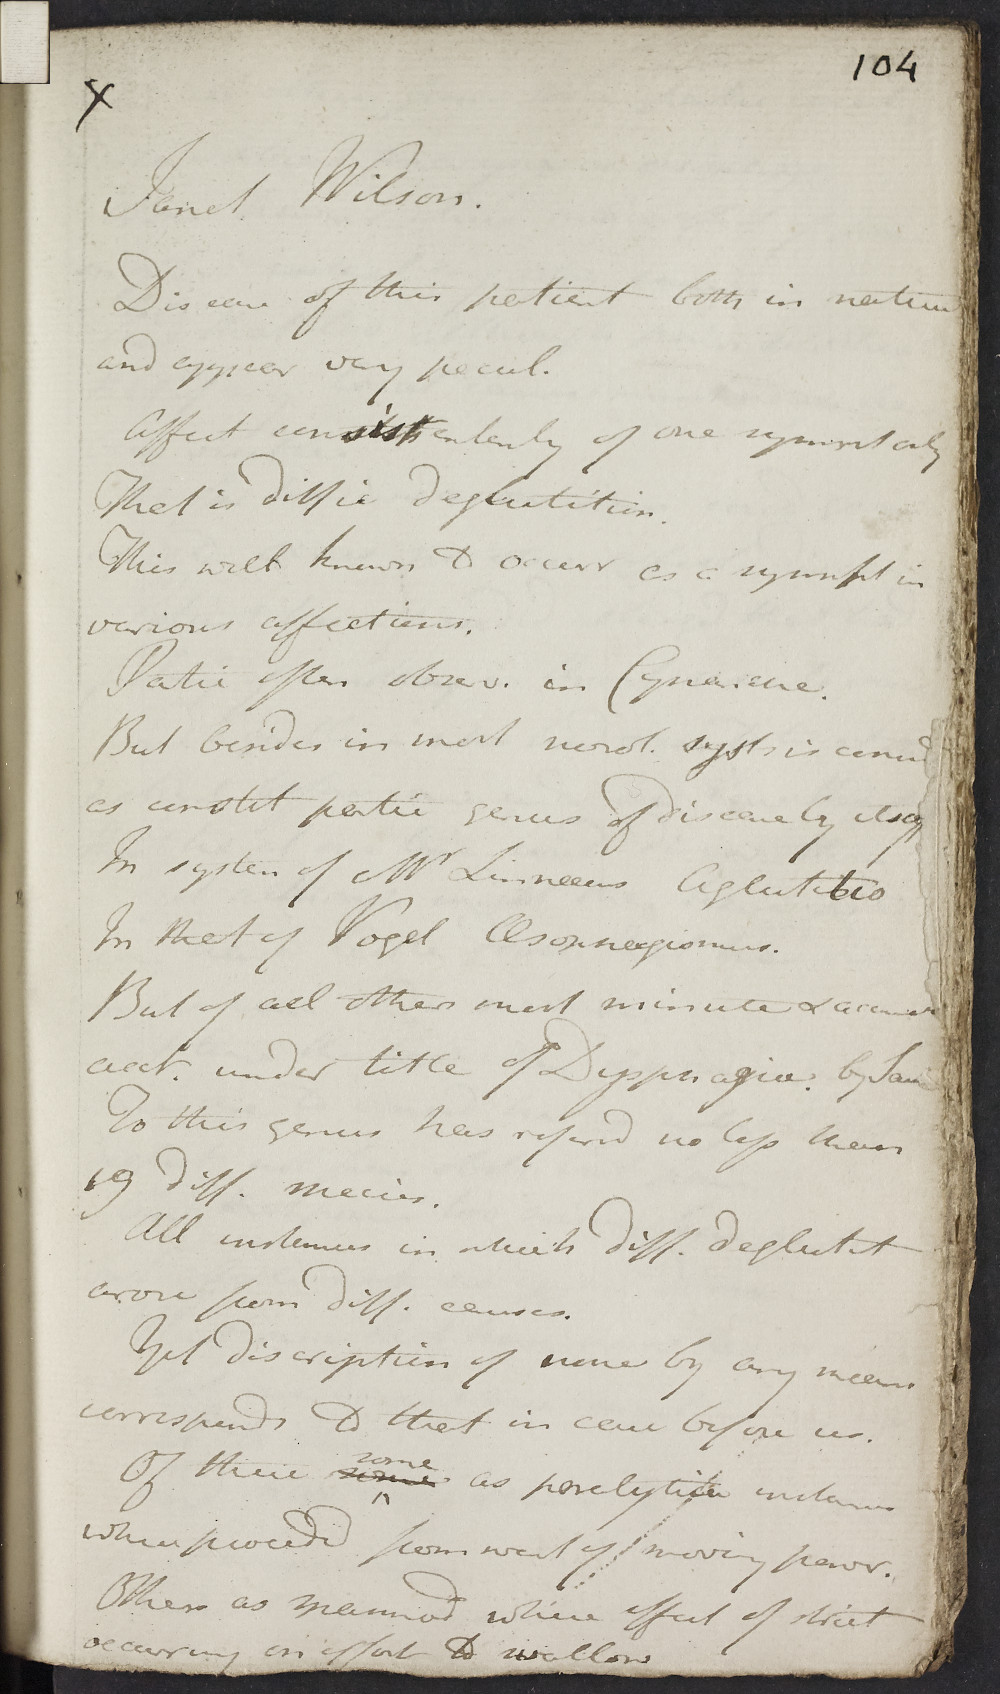 104
x
Janet Wilson.
Disease of this patient both in nature
and appear very pecul.
Affect consist entirely of one sympt only
That is diffic deglutition.
This well known to occurr as a sympt in
various affections.
Partic often observ. in Cynanche.
But besides in most nosol. systs is consid
as constit partic genus of disease by itself
In system of Mr Linnaeus Aglutitio
In that of Vogel Œsophagismus.
But of all others most minute & accurate
acct. under title of Dysphagia. by Sauv
To this genus has referd no less than
19 diff. species.
All instances in which diff. deglutit
arose from diff. causes.
Yet discription of none by any means
corresponds to that in case before us.
Of these some some as paralytica instances
where proceeds from want of moving power.
Others as spasmod where effect of strict
occurring on effort to swallow